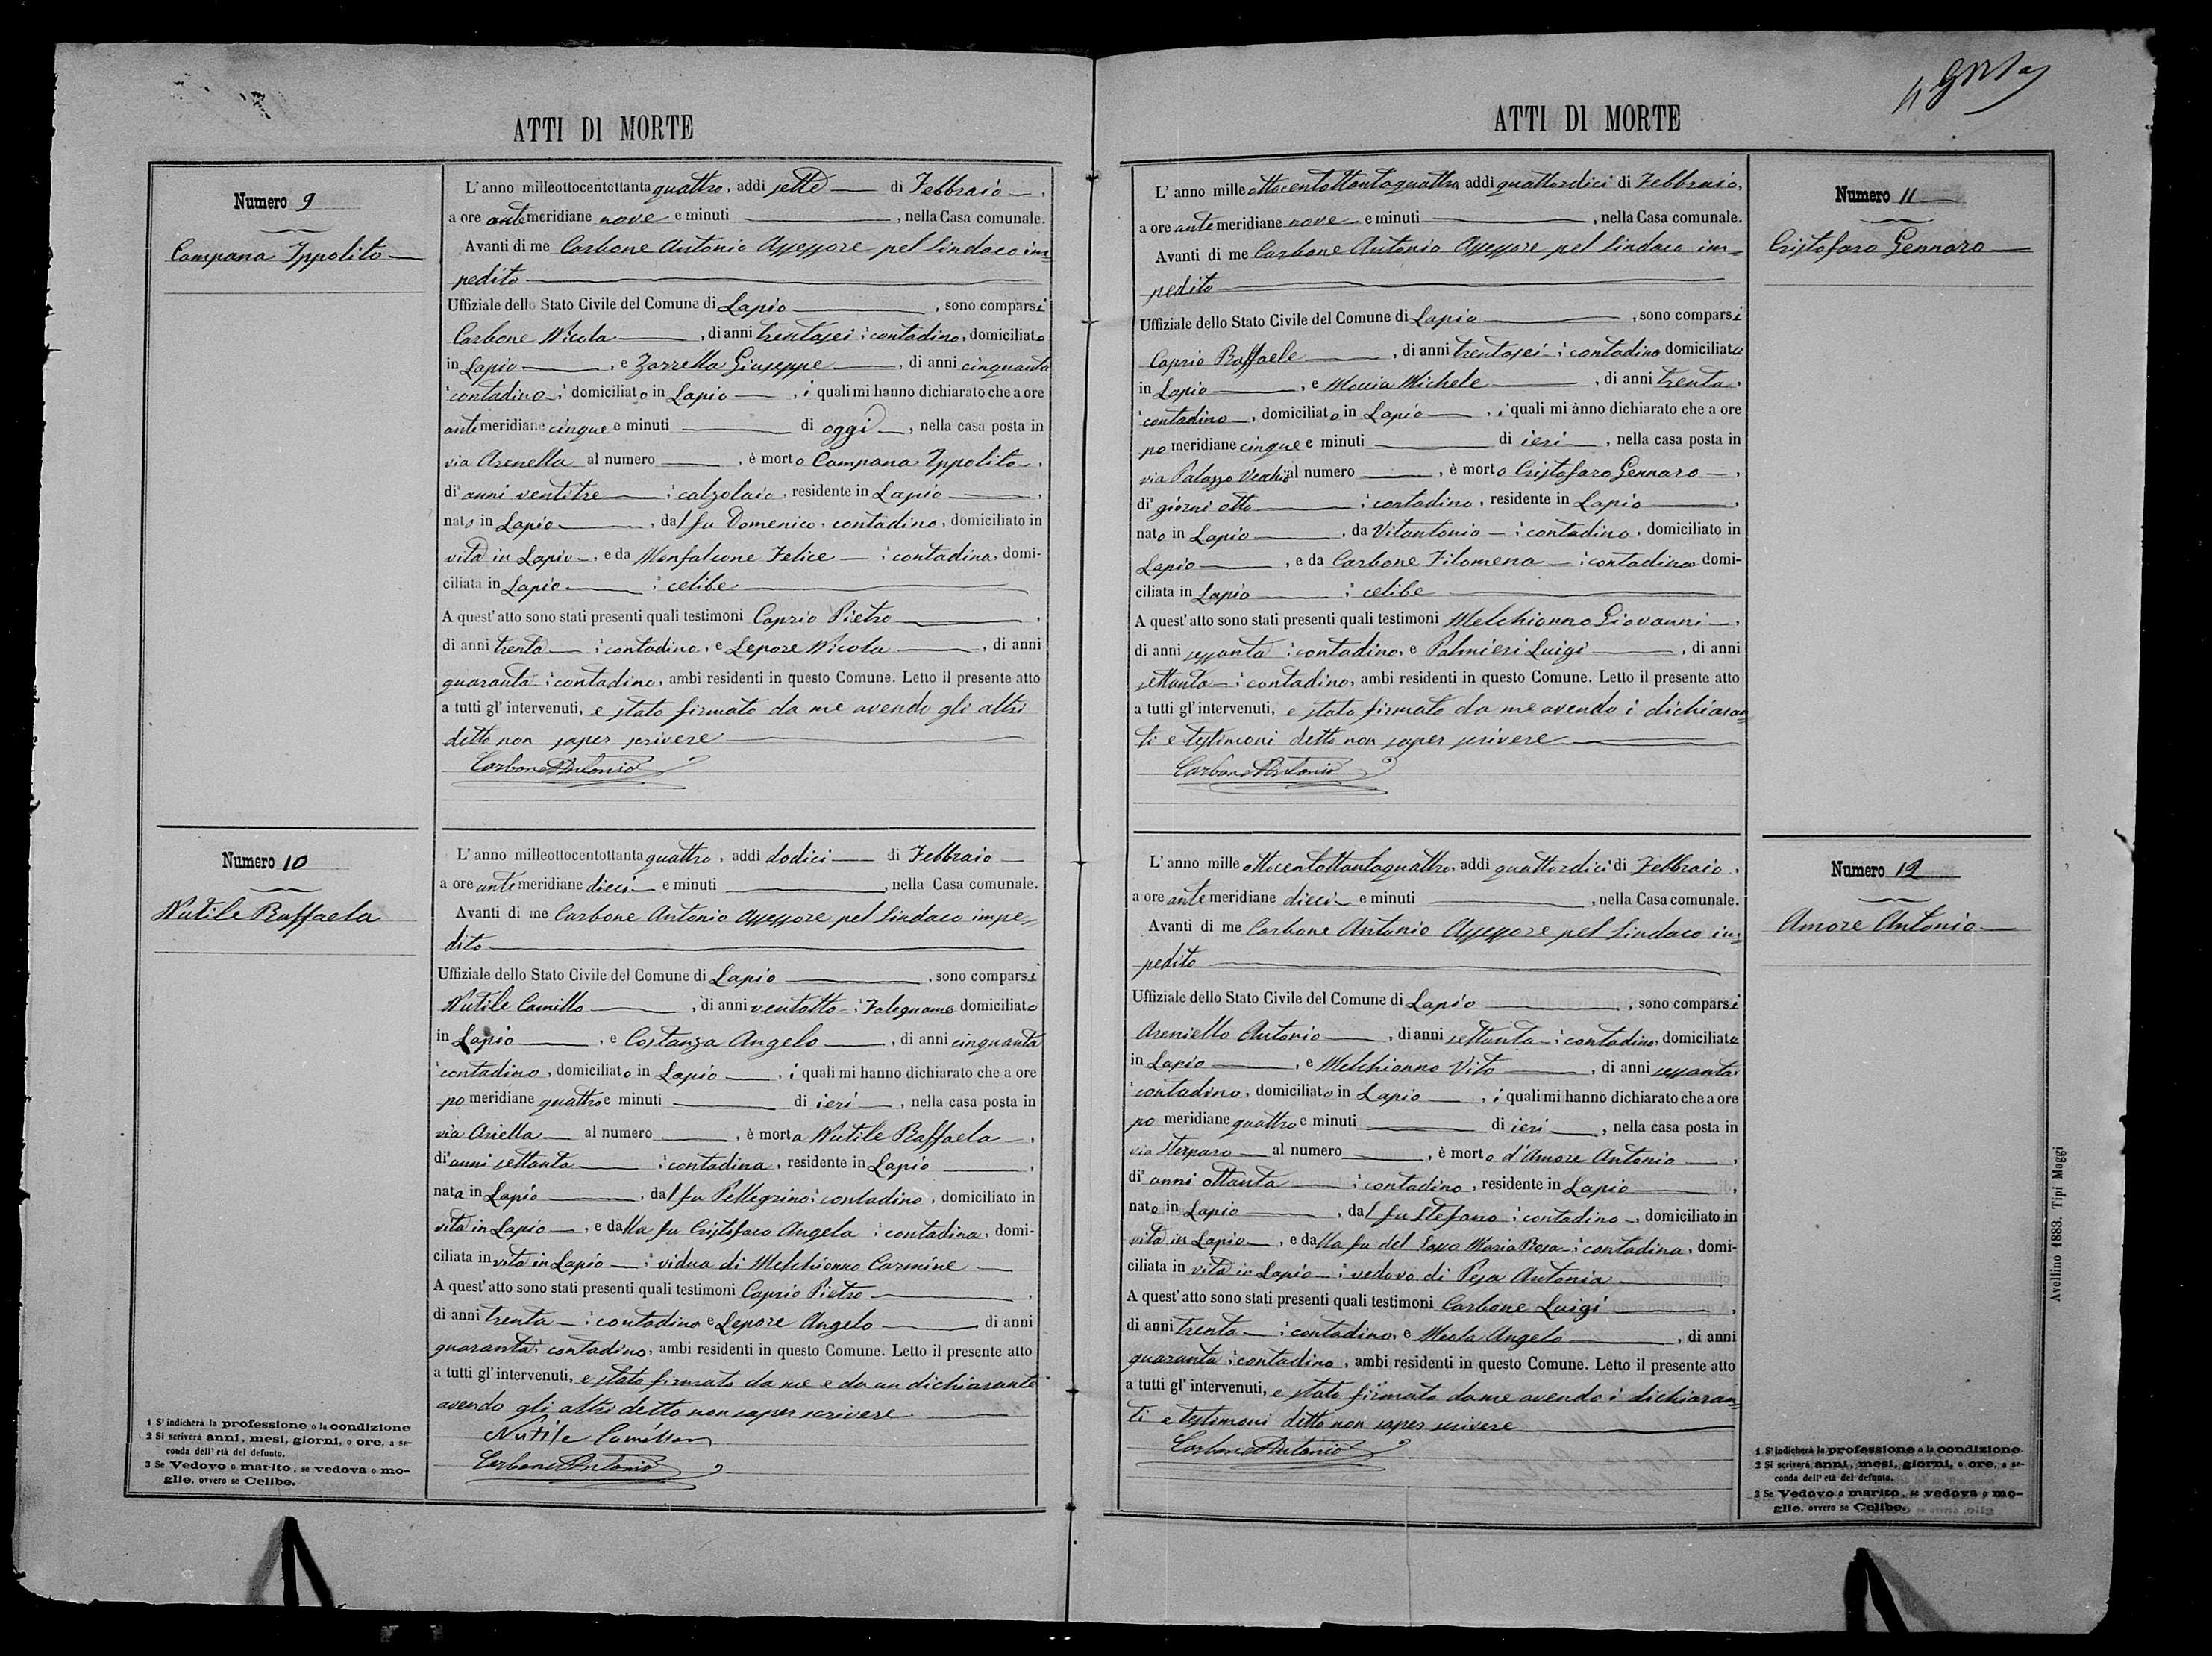 ATTI DI MORTE
Numero 9
Campana Ippolito
L'anno milleottocentottantaquattro, addi sette di Febbraio,
a ore antemeridiane nove e minuti , nella Casa comunale.
Avanti di me Carbone Antonio Assessore pel Sindaco im=
pedito
Uffiziale dello Stato Civile del Comune di Lapio , sono comparsi
Carbone Nicola , di anni trentasei, contadino, domiciliato
in Lapio , e Zarrella Giuseppe , di anni cinquanta
contadino, domiciliato in Lapio , i quali mi hanno dichiarato che a ore
antemeridiane cinque e minuti di oggi , nella casa posta in
via Arenella al numero , è morto Campana Ippolito,
di anni ventitre , calzolaio, residente in Lapio ,
nato in Lapio , dal fu Domenico, contadino, domiciliato in
vita in Lapio , e da Monfalcone Felice , contadina, domi-
ciliata in Lapio , celibe
A quest'atto sono stati presenti quali testimoni Caprio Pietro ,
di anni trenta , contadino, e Lepore Nicola , di anni
quaranta, contadino, ambi residenti in questo Comune. Letto il presente atto
a tutti gl'intervenuti, e stato firmato da me avendo gli altri
detto non saper scrivere
Carbone Antonio
Numero 10
Nutile Raffaela
L'anno milleottocentottantaquattro, addi dodici di Febbraio
a ore antemeridiane dieci e minuti , nella Casa comunale.
Avanti di me Carbone Antonio Assessore pel Sindaco impe=
dito
Uffiziale dello Stato Civile del Comune di Lapio , sono comparsi
Nutile Camillo , di anni ventotto, Falegname domiciliato
in Lapio , e Costanza Angelo , di anni cinquanta
contadino, domiciliato in Lapio , i quali mi hanno dichiarato che a ore
pomeridiane quattro e minuti di ieri , nella casa posta in
via Ariella al numero , è morta Nutile Raffaela ,
di anni settanta , contadina, residente in Lapio ,
nata in Lapio , dal fu Pellegrino, contadino, domiciliato in
vita in Lapio , e dalla fu Cristofaro Angela , contadina, domi-
ciliata in vita in Lapio , vidua di Melchionno Carmine
A quest'atto sono stati presenti quali testimoni Caprio Pietro ,
di anni trenta , contadino e Lepore Angelo di anni
quaranta, contadino, ambi residenti in questo Comune. Letto il presente atto
a tutti gl'intervenuti, e stato firmato da me e da un dichiarante
avendo gli altri detto non saper scrivere
Nutile Camillo
Carbone Antonio
1 S'indicherà la professione o la condizione
2 Si scriverà anni, mesi, giorni, o ore, a se-
conda dell'età del defunto.
3 Se Vedovo o marito, se vedova o mo-
glie, ovvero se Celibe.
ATTI DI MORTE
L'anno milleottocentottantaquattro, addi quattordici di Febbraio,
a ore antemeridiane nove e minuti , nella Casa comunale.
Avanti di me Carbone Antonio Assessore pel Sindaco im=
pedito
Uffiziale dello Stato Civile del Comune di Lapio , sono comparsi
Caprio Raffaele , di anni trentasei, contadino domiciliato
in Lapio , e Moccia Michele , di anni trenta,
contadino , domiciliato in Lapio , i quali mi ànno dichiarato che a ore
pomeridiane cinque e minuti di ieri , nella casa posta in
via Palazzo Vecchio al numero , è morto Cristofaro Gennaro ,
di giorni otto , contadino, residente in Lapio ,
nato in Lapio , da Vitantonio , contadino, domiciliato in
Lapio , e da Carbone Filomena , contadina domi-
ciliata in Lapio , celibe
A quest'atto sono stati presenti quali testimoni Melchionno Giovanni ,
di anni sessanta, contadino, e Palmieri Luigi , di anni
settanta, contadino, ambi residenti in questo Comune. Letto il presente atto
a tutti gl'intervenuti, e stato firmato da me avendo i dichiaran=
ti e testimoni detto non saper scrivere
Carbone Antonio
Numero 11
Cristofaro Gennaro
L'anno milleottocentottantaquattro, addi quattordici di Febbraio,
a ore antemeridiane dieci e minuti , nella Casa comunale.
Avanti di me Carbone Antonio Assessore pel Sindaco im=
pedito
Uffiziale dello Stato Civile del Comune di Lapio , sono comparsi
Areniello Antonio , di anni settanta, contadino, domiciliato
in Lapio , e Melchionno Vito , di anni sessanta,
contadino, domiciliato in Lapio , i quali mi hanno dichiarato che a ore
pomeridiane quattro e minuti di ieri , nella casa posta in
via Sterparo al numero , è morto d'Amore Antonio ,
di anni ottanta , contadino, residente in Lapio ,
nato in Lapio , dal fu Stefano, contadino , domiciliato in
vita in Lapio , e dalla fu del Sapio Maria Rosa , contadina, domi-
ciliata in vita in Lapio , vedovo di Pesa Antonia
A quest'atto sono stati presenti quali testimoni Carbone Luigi ,
di anni trenta , contadino, e Meola Angelo , di anni
quaranta, contadino, ambi residenti in questo Comune. Letto il presente atto
a tutti gl'intervenuti, e stato firmato da me avendo i dichiaran=
ti e testimoni detto non saper scrivere
Carbone Antonio
Numero 12
Amore Antonio
1 S'indicherà la professione o la condizione
2 Si scriverà anni, mesi, giorni, o ore, a se-
conda dell'età del defunto.
3 Se Vedovo o marito, se vedova o mo-
glie, ovvero se Celibe.
Avellino 1883. Tipi Maggi